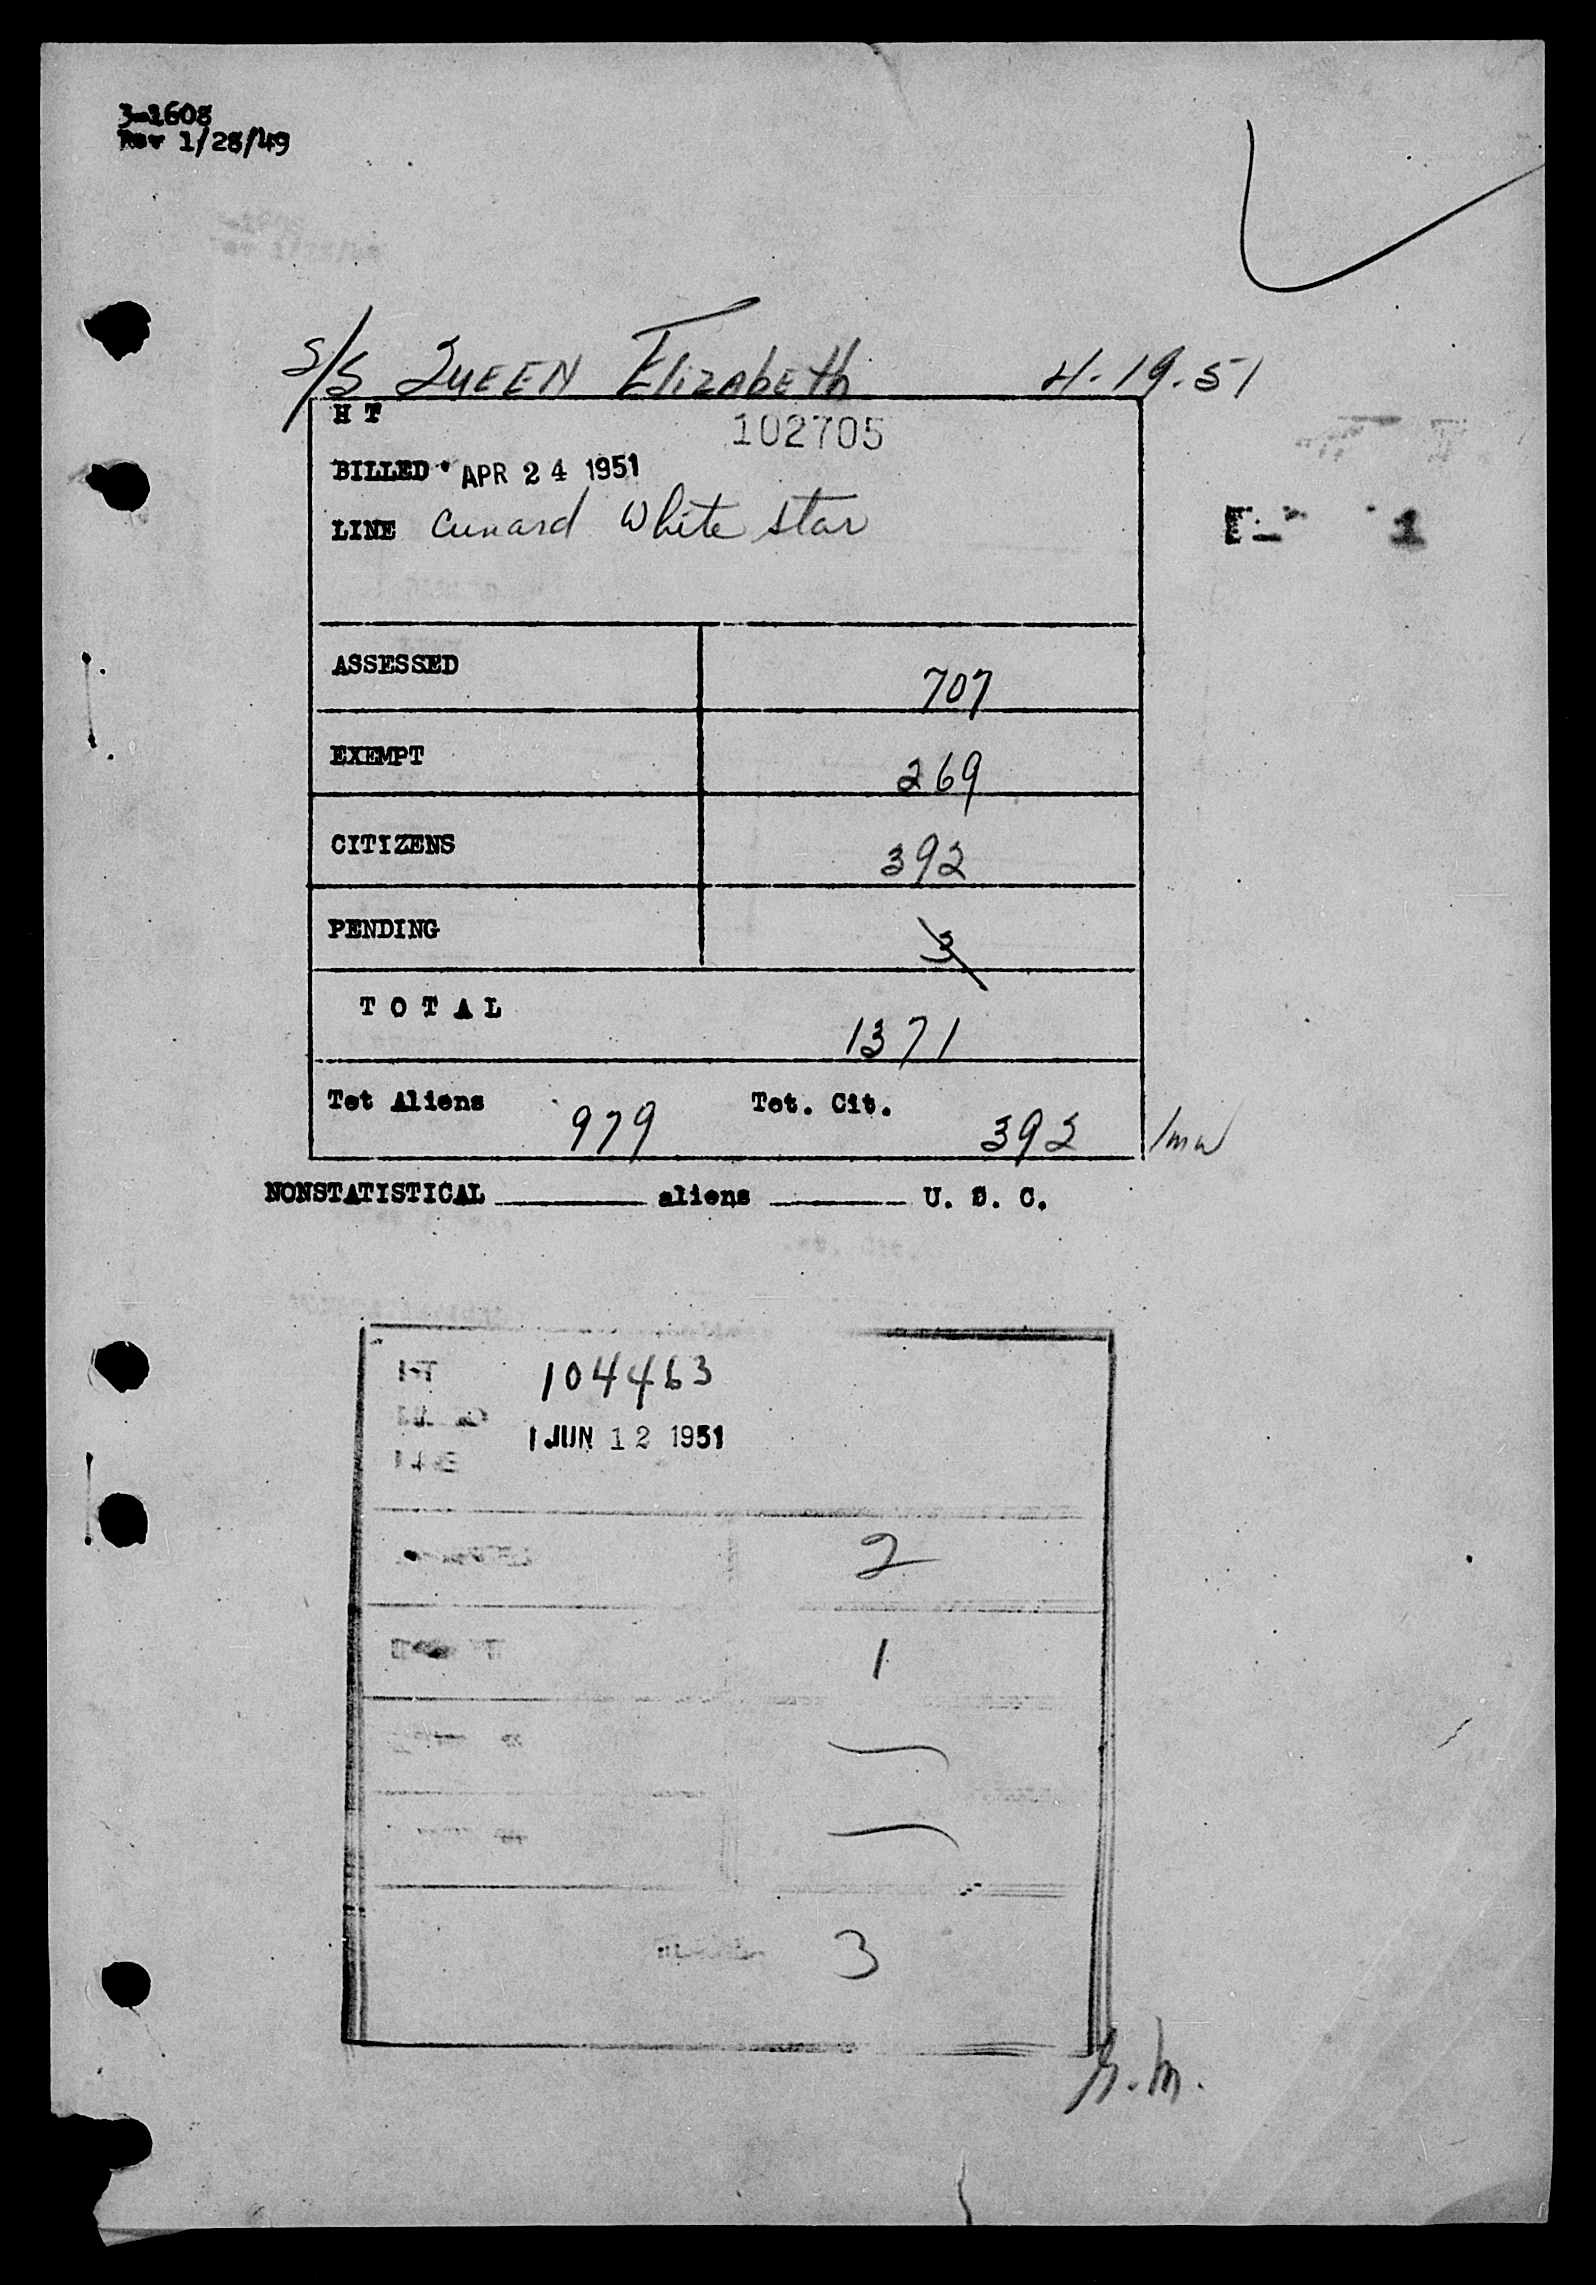 3-1608
Rev 1/28/49
S/S QUEEN ElizabeTh 4-19-51
H T 102705
BILLED APR 24 1951
LINE Cunard White Star
ASSESSED 707
EXEMPT 269
CITIZENS 392
PENDING 3
T O T A L 1371
Tot Aliens 979 Tot. Cit. 392
NONSTATISTICAL ______ aliens ______ U. S. C.
104463
JUN 12 1951
2
1
3